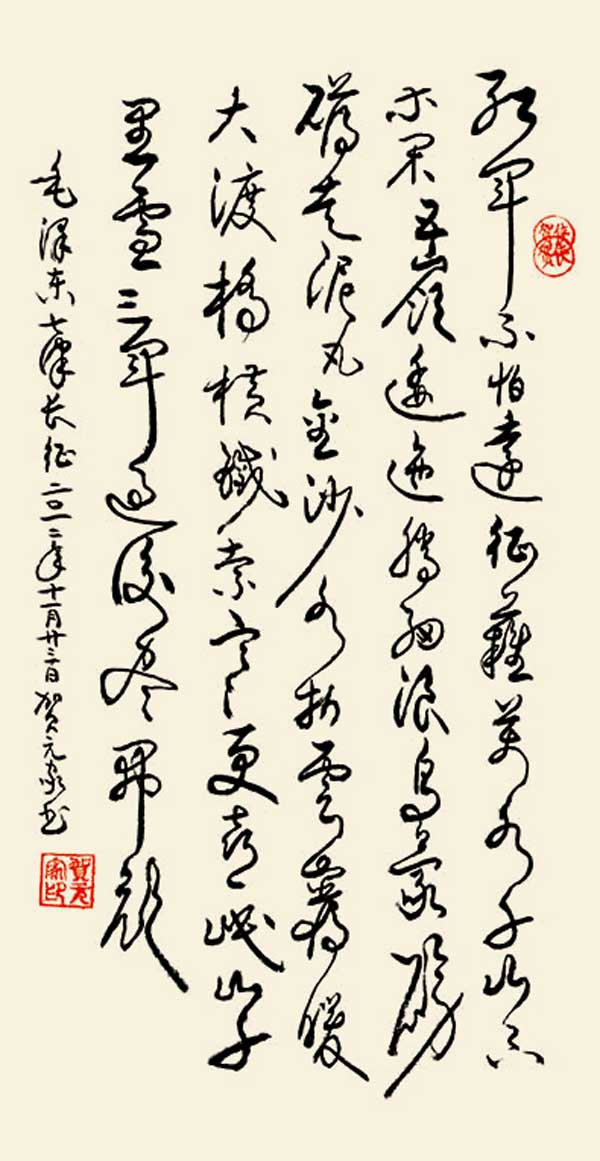 红军不怕遠征難萬水千山只
等闲五岭逶迤腾细浪乌蒙磅
礴走泥丸金沙水拍雲崖暖
大渡橋横鐵索寒更喜岷山千
里雪三军过後尽开颜
毛泽东七律长征二〇一二年十一月廿三日贺元家书
賀元家印